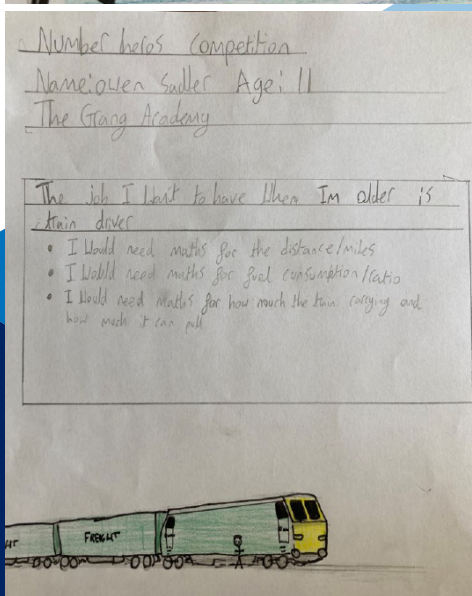 Number heros Competition
Name: owen Sadler Age: 11
The Grang Academy
The job I Want to have When Im older is
train driver
• I Would need maths for the distance/miles
• I Would need maths for fuel consumption/ratio
• I Would need maths for how much the train carying and
how much it can pull
HT
FREIGHT